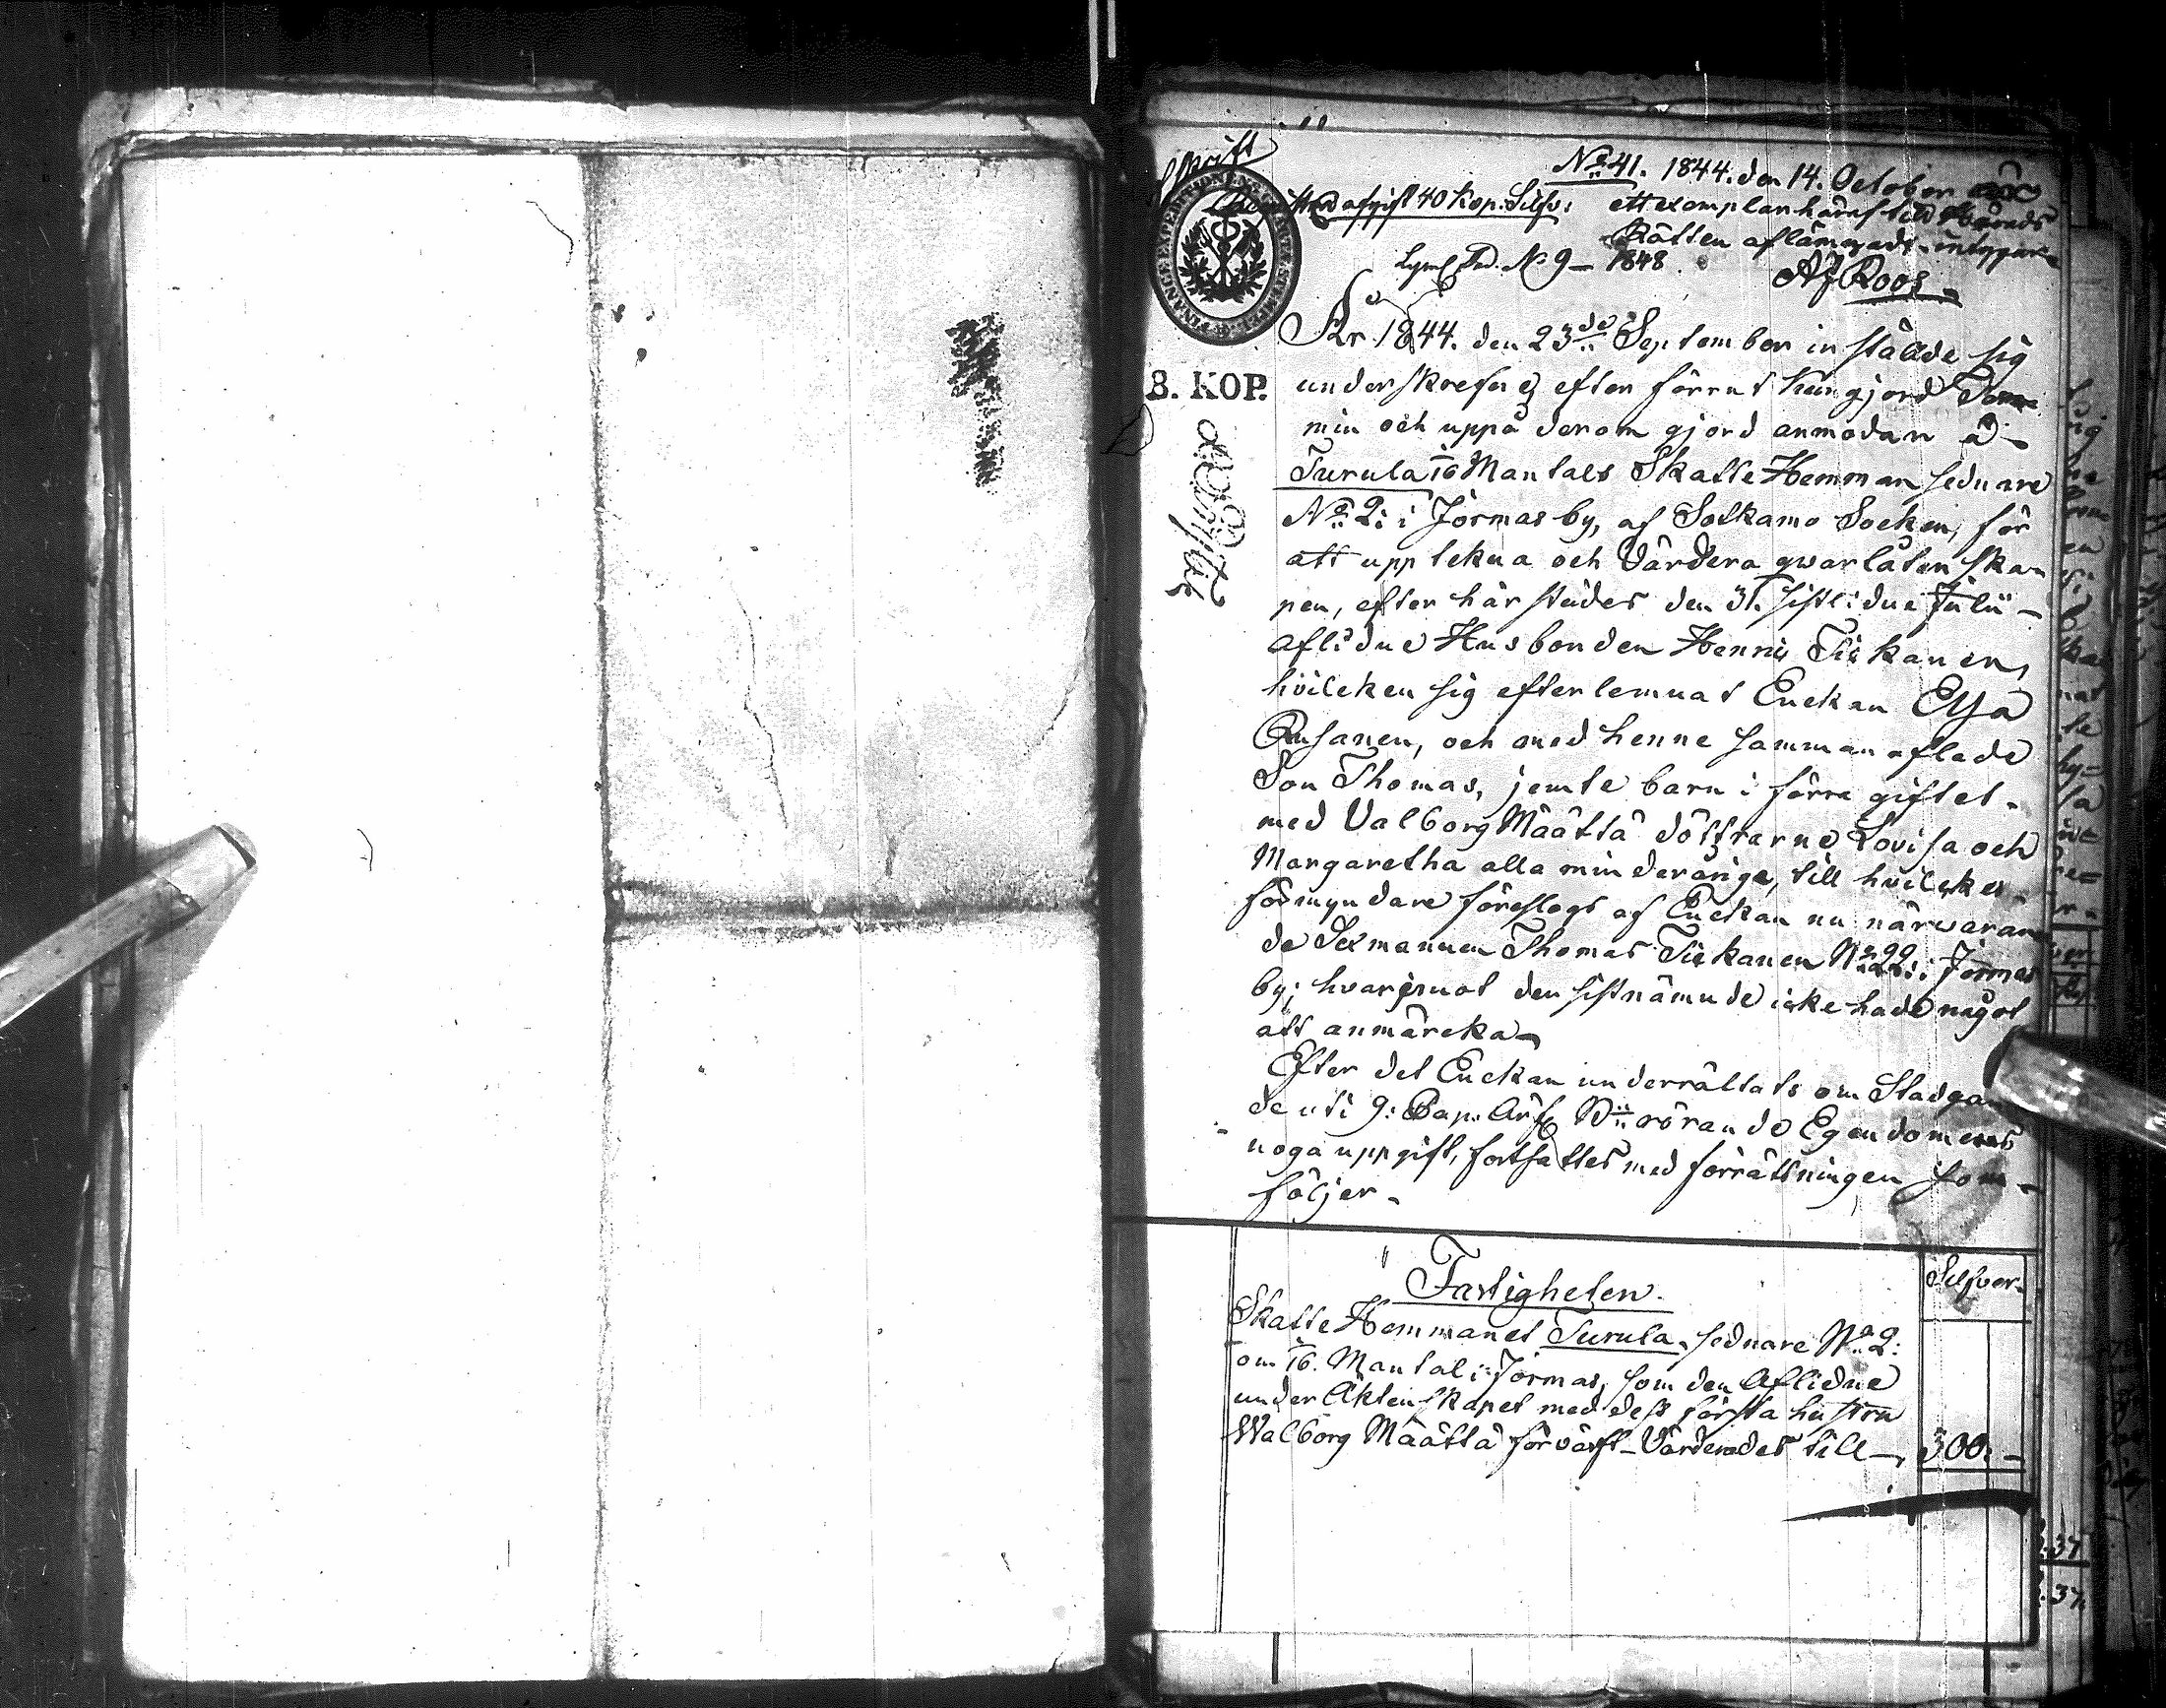 No 41. 1844. den 14. October
afgift 40 Kop. Silfv:
ett exemplar häraf till Härads
Rätten aflämnads, intygar
No 9 – 1848
Af Roos
FINANCE EXPEDITIONENS
8. KOP.
År 1844. den 23de September inställde sig
underskrefne efter förrut kungjord Ter-
min och uppå derom gjord anmodan å
Turula 1/16 Mantals Skatte Hemman sednare
No 2: i Jormas by, af Sotkamo Socken, för
att upptekna och Värdera qwarlåtenska-
pen, efter härstädes den 31. sistl:dne Julii
aflidne Husbonden Henric Tickanen,
hvilcken sig efterlemnat Enckan Elsa
Rusanen, och med henne sammanaflade
Son Thomas, jemte barn i förra giftet
med Valborg Määttä döttrarne Lovisa och
Margaretha alla minderårige, till hvilckes
förmyndare föreslogs af Enckan nu närwaran
de Sexmannen Thomas Tickanen No 22: i Jormas
by; hvaremot den sistnämnde icke hade något
att anmärcka
Efter det Enckan underrättats om Stadgan
de uti 9: Cap. Ärf. B: rörande Egendomens
noga uppgift, fortsattes med förrättningen som
följer
Fastigheten.
Silfver.
Skatte Hemmanet Turula, sednare No 2:
om 1/16. Mantal i Jormas, som den Aflidne
under Äktenskapet med dess första hustru
Walborg Määttä förvärft – Värderades till 300: –